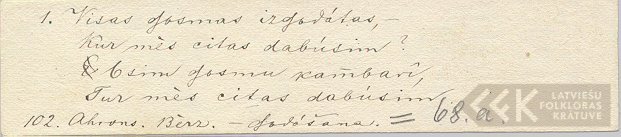 1. Visas dosmas izdodātas, –
Kur mēs citas dabūsim?
Esim dosmu kam̃barî,
Tur mēs citas dabūsim.
102. Ahrons. Bērz. – dodāšana. = 68. a.
LATVIEŠU
FOLKLORAS
KRĀTUVE